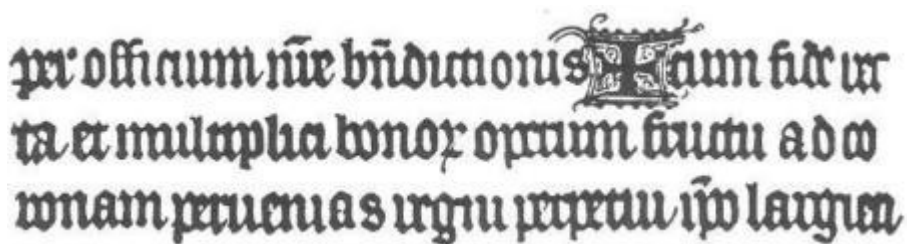 per officium nr̄e bn̄dictionis cum fide rec
ta et multiplici bonoꝝ operum fructu ad co
ronam peruenias regni perpetui ip̄o largien